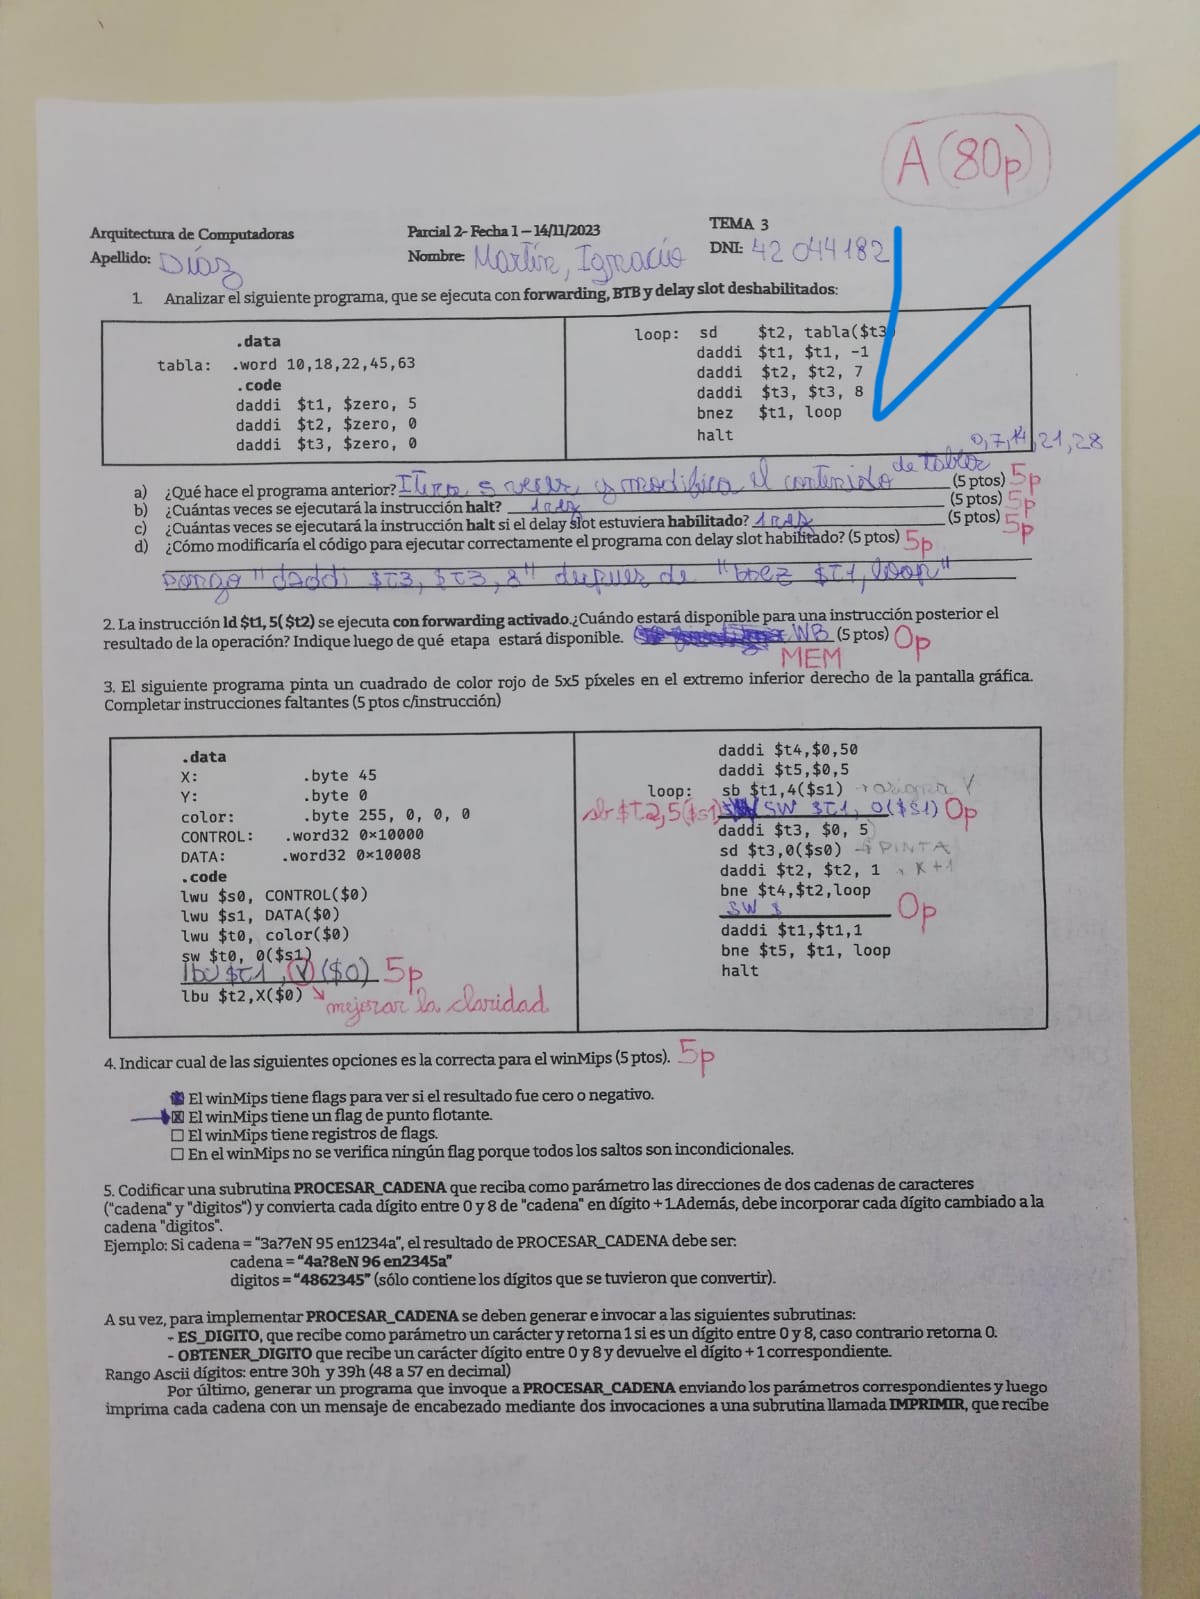 A (80p)
Arquitectura de Computadoras Parcial 2- Fecha 1 – 14/11/2023 TEMA 3
Apellido: Díaz Nombre: Martín, Ignacio DNI: 42 044 182
1. Analizar el siguiente programa, que se ejecuta con forwarding, BTB y delay slot deshabilitados:
.data
tabla: .word 10,18,22,45,63
.code
daddi $t1, $zero, 5
daddi $t2, $zero, 0
daddi $t3, $zero, 0
loop: sd $t2, tabla($t3)
daddi $t1, $t1, -1
daddi $t2, $t2, 7
daddi $t3, $t3, 8
bnez $t1, loop
halt
0,7,14,21,28
a) ¿Qué hace el programa anterior? Itera 5 veces y modifica el contenido de tabla (5 ptos) 5p
b) ¿Cuántas veces se ejecutará la instrucción halt? 1 vez (5 ptos) 5p
c) ¿Cuántas veces se ejecutará la instrucción halt si el delay slot estuviera habilitado? 1 vez (5 ptos) 5p
d) ¿Cómo modificaría el código para ejecutar correctamente el programa con delay slot habilitado? (5 ptos) 5p
Pongo "daddi $t3, $t3, 8" depues de "bnez $t1, loop"
2. La instrucción ld $t1, 5( $t2) se ejecuta con forwarding activado.¿Cuándo estará disponible para una instrucción posterior el
resultado de la operación? Indique luego de qué etapa estará disponible. WB (5 ptos) 0p
MEM
3. El siguiente programa pinta un cuadrado de color rojo de 5x5 píxeles en el extremo inferior derecho de la pantalla gráfica.
Completar instrucciones faltantes (5 ptos c/instrucción)
.data
X: .byte 45
Y: .byte 0
color: .byte 255, 0, 0, 0
CONTROL: .word32 0×10000
DATA: .word32 0×10008
.code
lwu $s0, CONTROL($0)
lwu $s1, DATA($0)
lwu $t0, color($0)
sw $t0, 0($s1)
lbu $t1, Y($0) 5p
lbu $t2,X($0) mejorar la claridad
daddi $t4,$0,50
daddi $t5,$0,5
loop: sb $t1,4($s1) Y
sb $t2,5($s1) SW $t1, 0($s1) 0p
daddi $t3, $0, 5
sd $t3,0($s0) PINTA
daddi $t2, $t2, 1 X+1
bne $t4,$t2,loop
SW $ 0p
daddi $t1,$t1,1
bne $t5, $t1, loop
halt
4. Indicar cual de las siguientes opciones es la correcta para el winMips (5 ptos). 5p
El winMips tiene flags para ver si el resultado fue cero o negativo.
☒ El winMips tiene un flag de punto flotante.
☐ El winMips tiene registros de flags.
☐ En el winMips no se verifica ningún flag porque todos los saltos son incondicionales.
5. Codificar una subrutina PROCESAR_CADENA que reciba como parámetro las direcciones de dos cadenas de caracteres
("cadena" y "digitos") y convierta cada dígito entre 0 y 8 de "cadena" en dígito + 1.Además, debe incorporar cada dígito cambiado a la
cadena "digitos".
Ejemplo: Si cadena = "3a?7eN 95 en1234a", el resultado de PROCESAR_CADENA debe ser:
cadena = "4a?8eN 96 en2345a"
digitos = "4862345" (sólo contiene los dígitos que se tuvieron que convertir).
A su vez, para implementar PROCESAR_CADENA se deben generar e invocar a las siguientes subrutinas:
- ES_DIGITO, que recibe como parámetro un carácter y retorna 1 si es un dígito entre 0 y 8, caso contrario retorna 0.
- OBTENER_DIGITO que recibe un carácter dígito entre 0 y 8 y devuelve el dígito + 1 correspondiente.
Rango Ascii dígitos: entre 30h y 39h (48 a 57 en decimal)
Por último, generar un programa que invoque a PROCESAR_CADENA enviando los parámetros correspondientes y luego
imprima cada cadena con un mensaje de encabezado mediante dos invocaciones a una subrutina llamada IMPRIMIR, que recibe